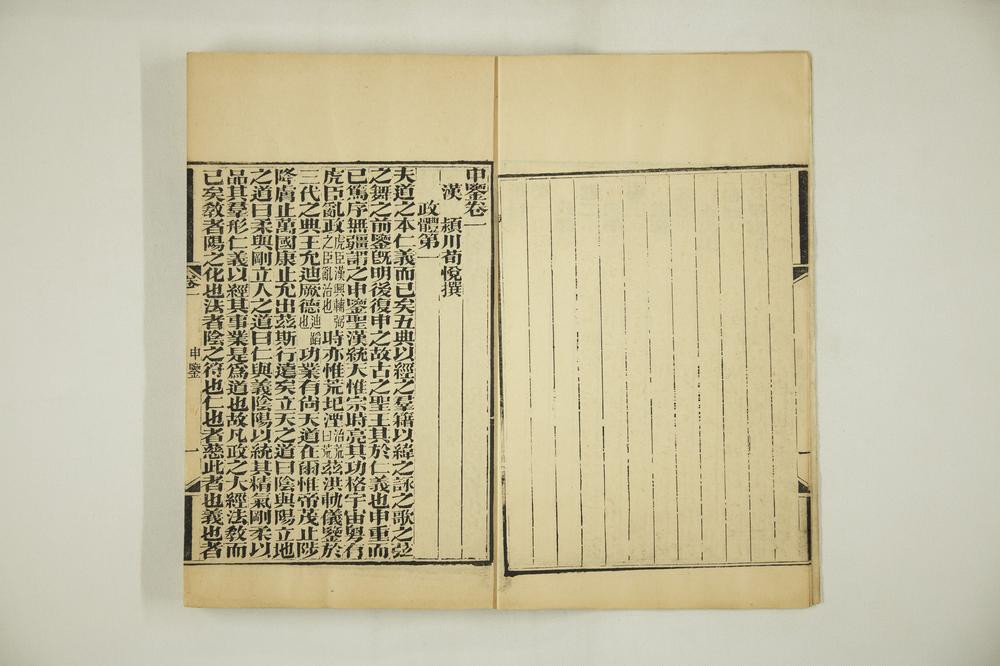 申鑒卷一
漢 潁川荀悅撰
政體第一
夫道之本仁義而已矣五典以經之羣籍以緯之詠之歌之弦
之舞之前鑒旣明後復申之故古之聖王其於仁義也申重而
已篤序無疆謂之申鑒聖漢統天惟宗時亮其功格宇宙粵有
虎臣亂政虎臣漢興輔弼之臣亂治也時亦惟荒圯湮治荒曰荒茲洪軌儀鑒於
三代之典王允迪厥德迪蹈也功業有尚天道在爾惟帝茂止陟
降膚止萬國康止允出茲斯行遠矣立天之道曰陰與陽立地
之道曰柔與剛立人之道曰仁與義陰陽以統其精氣剛柔以
品其羣形仁義以經其事業是爲道也故凡政之大經法教而
已矣教者陽之化也法者陰之符也仁也者慈此者也義也者
卷一
申鑒
一